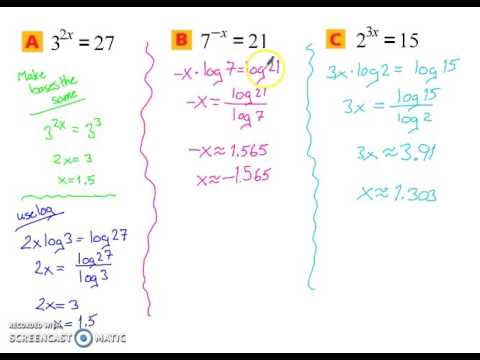 A 3^{2x} = 27
Make
bases the
same
3^{2x} = 3^3
2x = 3
x = 1.5
use log
2x log 3 = log 27
2x = log 27 / log 3
2x = 3
x = 1.5
B 7^{-x} = 21
-x · log 7 = log 21
-x = log 21 / log 7
-x ≈ 1.565
x ≈ -1.565
C 2^{3x} = 15
3x · log 2 = log 15
3x = log 15 / log 2
3x ≈ 3.91
x ≈ 1.303
RECORDED WITH
SCREENCAST MATIC